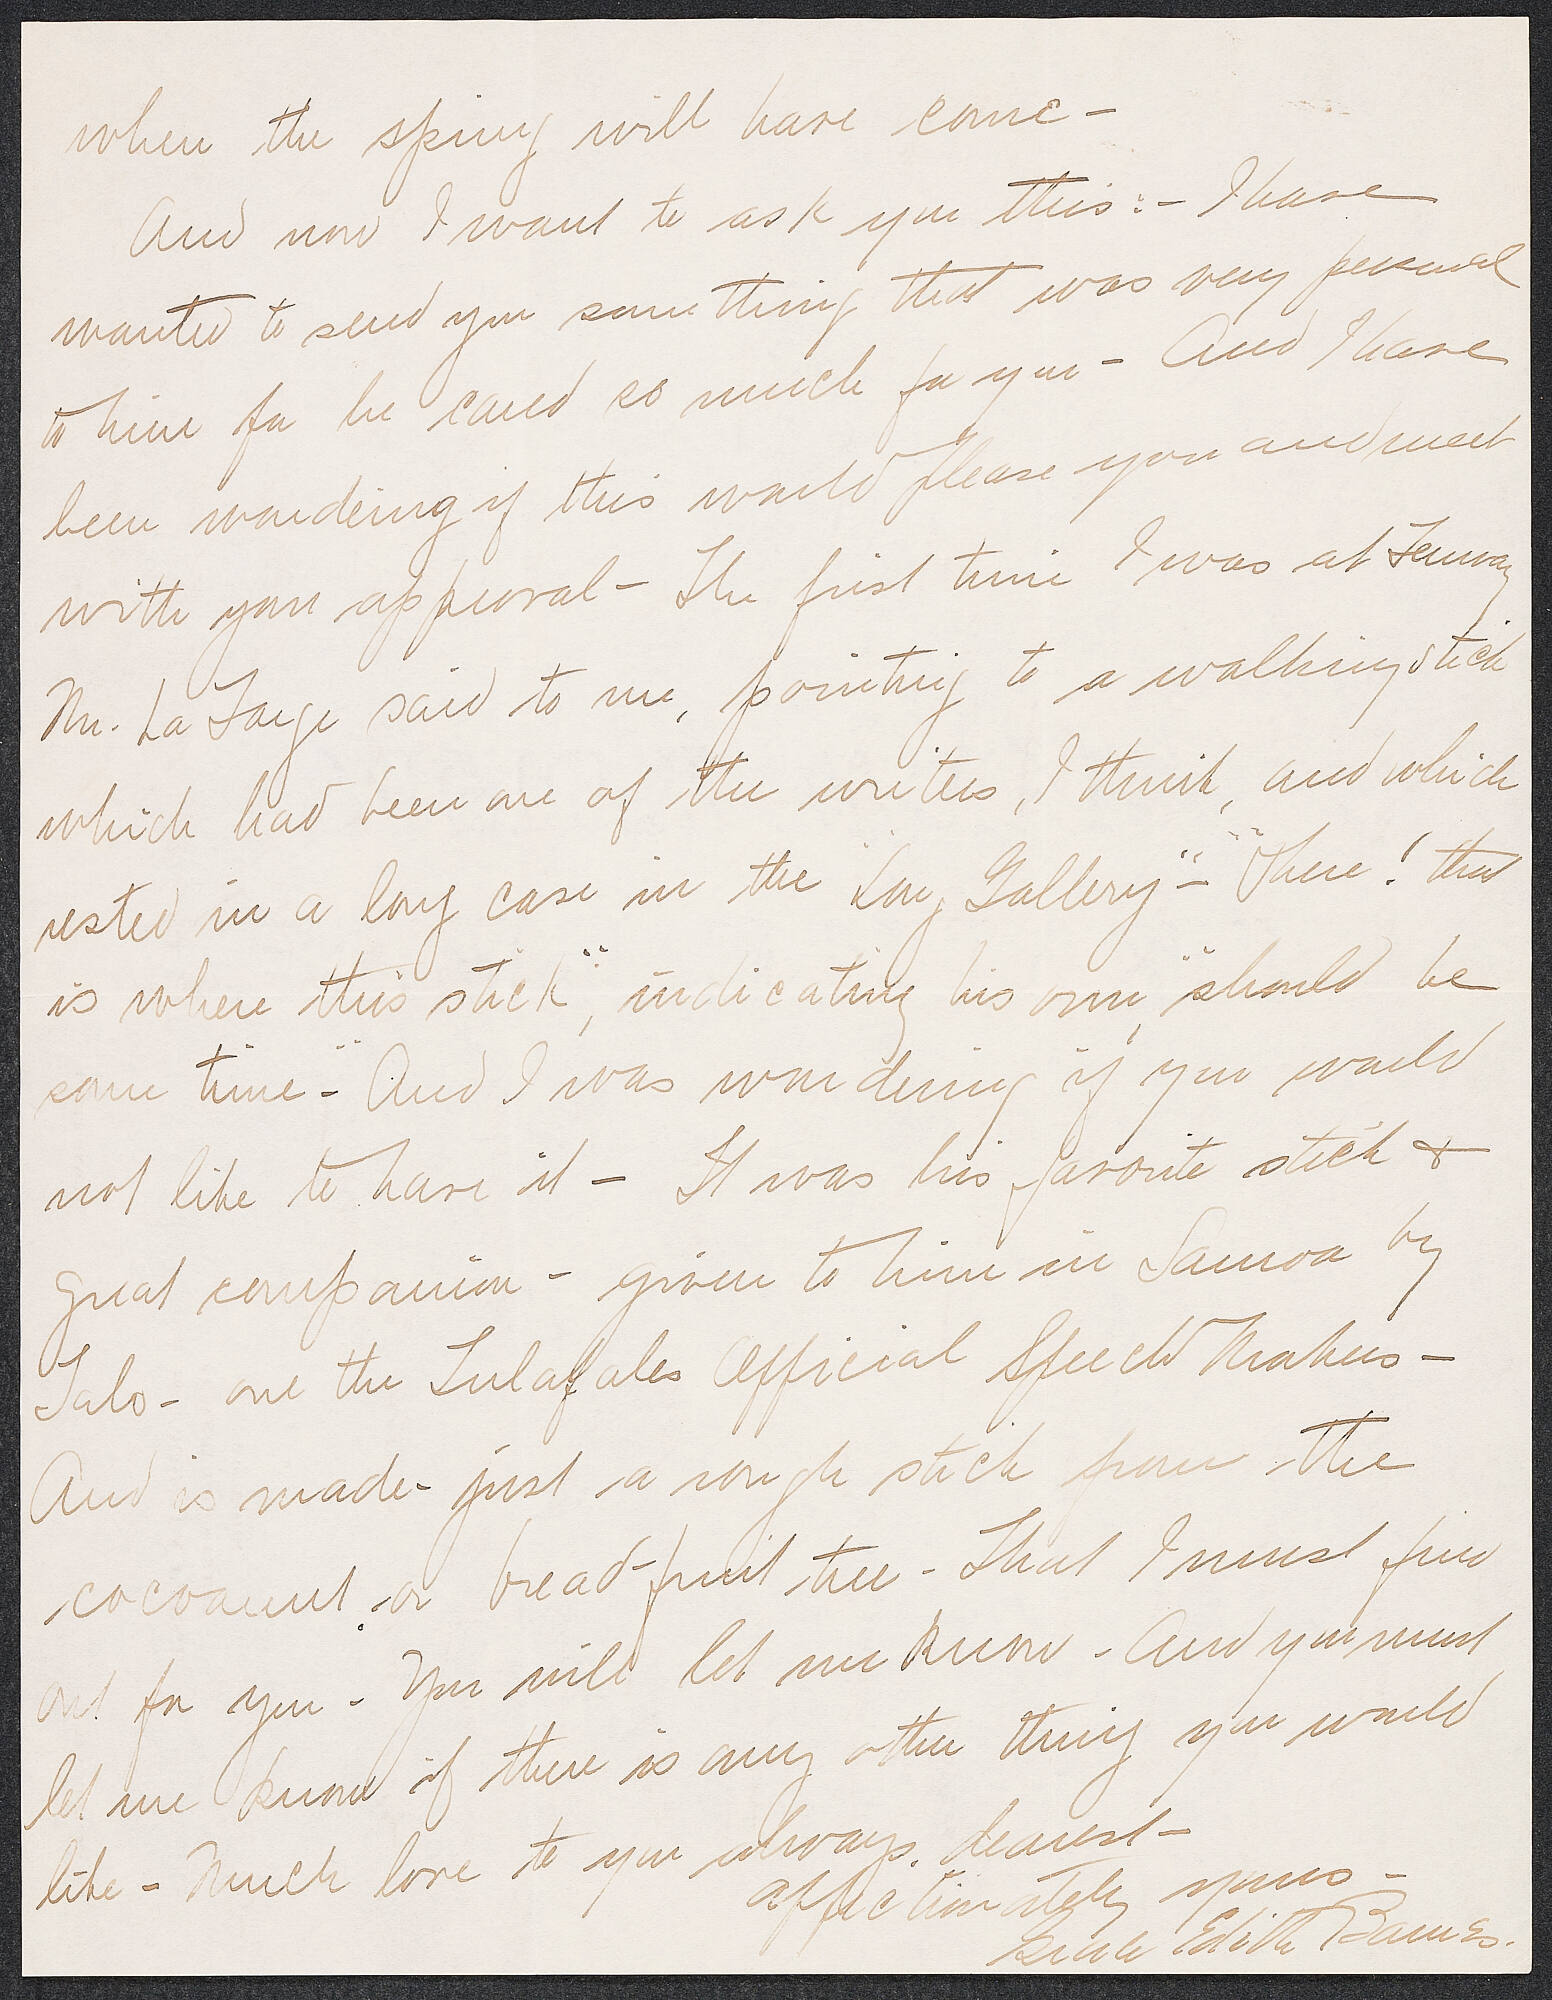 when the spring will have come -
And now I want to ask you this :- I have
wanted to send you something that was very personal
to him for he cared so much for you - And I have
been wondering if this would please you and meet
with your approval - The first time I was at Fenway
Mr. La Farge said to me, pointing to a walking stick
which had been one of the writers, I think, and which
rested in a long case in the "Long Gallery" - "There! that
is where this stick", indicating his own, "should be
some time -" And I was wondering if you would
not like to have it - It was his favorite stick &
great companion - given to him in Samoa by
Talo - one the Tulafales Official Speech Makers -
And is made - just a rough stick from the
cocoanut or bread-fruit tree - That I must find
out for you - You will let me know - And you must
let me know if there is any other thing you would
like - Much love to you always, dearest -
affectionately yours -
Grace Edith Barnes.